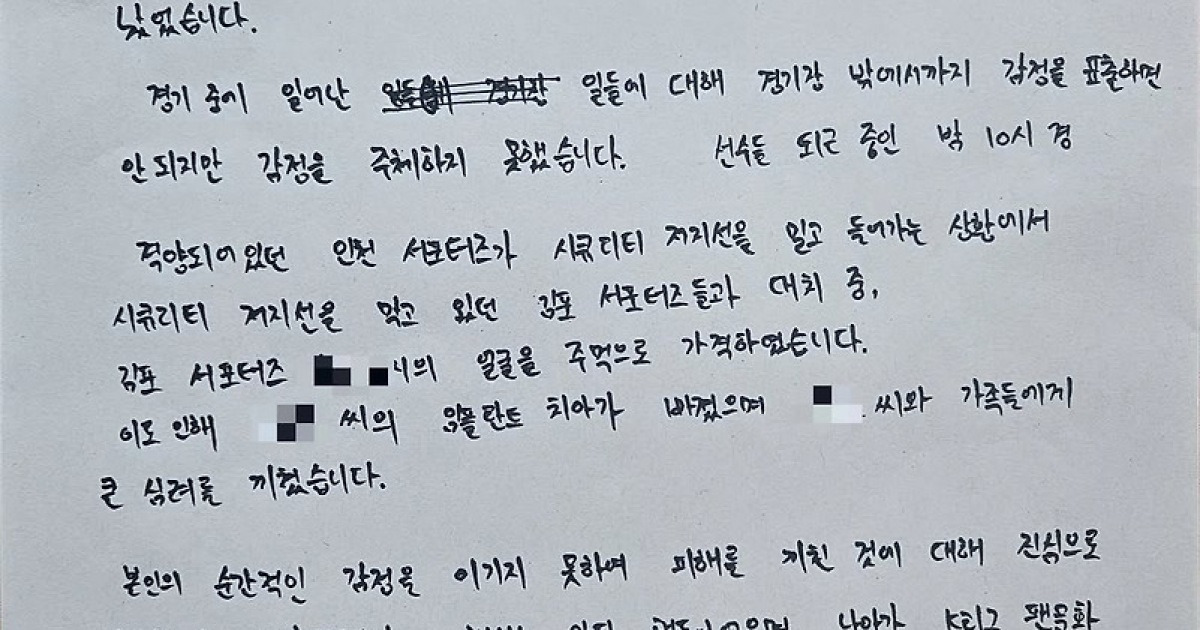 낳았습니다.
경기 중에 일어난 일들에 대해 경기장 밖에서까지 감정을 표출하면
안되지만 감정을 주체하지 못했습니다. 선수들 퇴근 중인 밤 10시 경
격양되어있던 인천 서포터즈가 시큐리티 저지선을 밀고 들어가는 상황에서
시큐리티 저지선을 막고 있던 김포 서포터즈들과 대치 중,
김포 서포터즈 의 얼굴을 주먹으로 가격하였습니다.
이로 인해 씨의 임플란트 치아가 빠졌으며 씨와 가족들에게
큰 심려를 끼쳤습니다.
본인의 순간적인 감정을 이기지 못하여 피해를 끼친 것에 대해 진심으로
나아가 K리그 팬문화